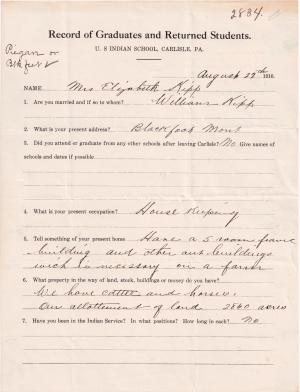 2884
Piegan or
Blkfeet
Record of Graduates and Returned Students.
U. S INDIAN SCHOOL, CARLISLE, PA.
August 29th 1910.
NAME Mrs Elizabeth Kipp
1. Are you married and if so to whom? William Kipp
2. What is your present address? Blackfoot Mont
3. Did you attend or graduate from any other schools after leaving Carlisle? No Give names of
schools and dates if possible
4. What is your present occupation? House Keeping
5. Tell something of your present home Have a 5 room frame
building and other out buildings
wich is necessary on a farm
6. What property in the way of land, stock, buildings or money do you have?
We have cattle and horses.
Our allottement of land 2860 acres
7. Have you been in the Indian Service? In what positions? How long in each? No